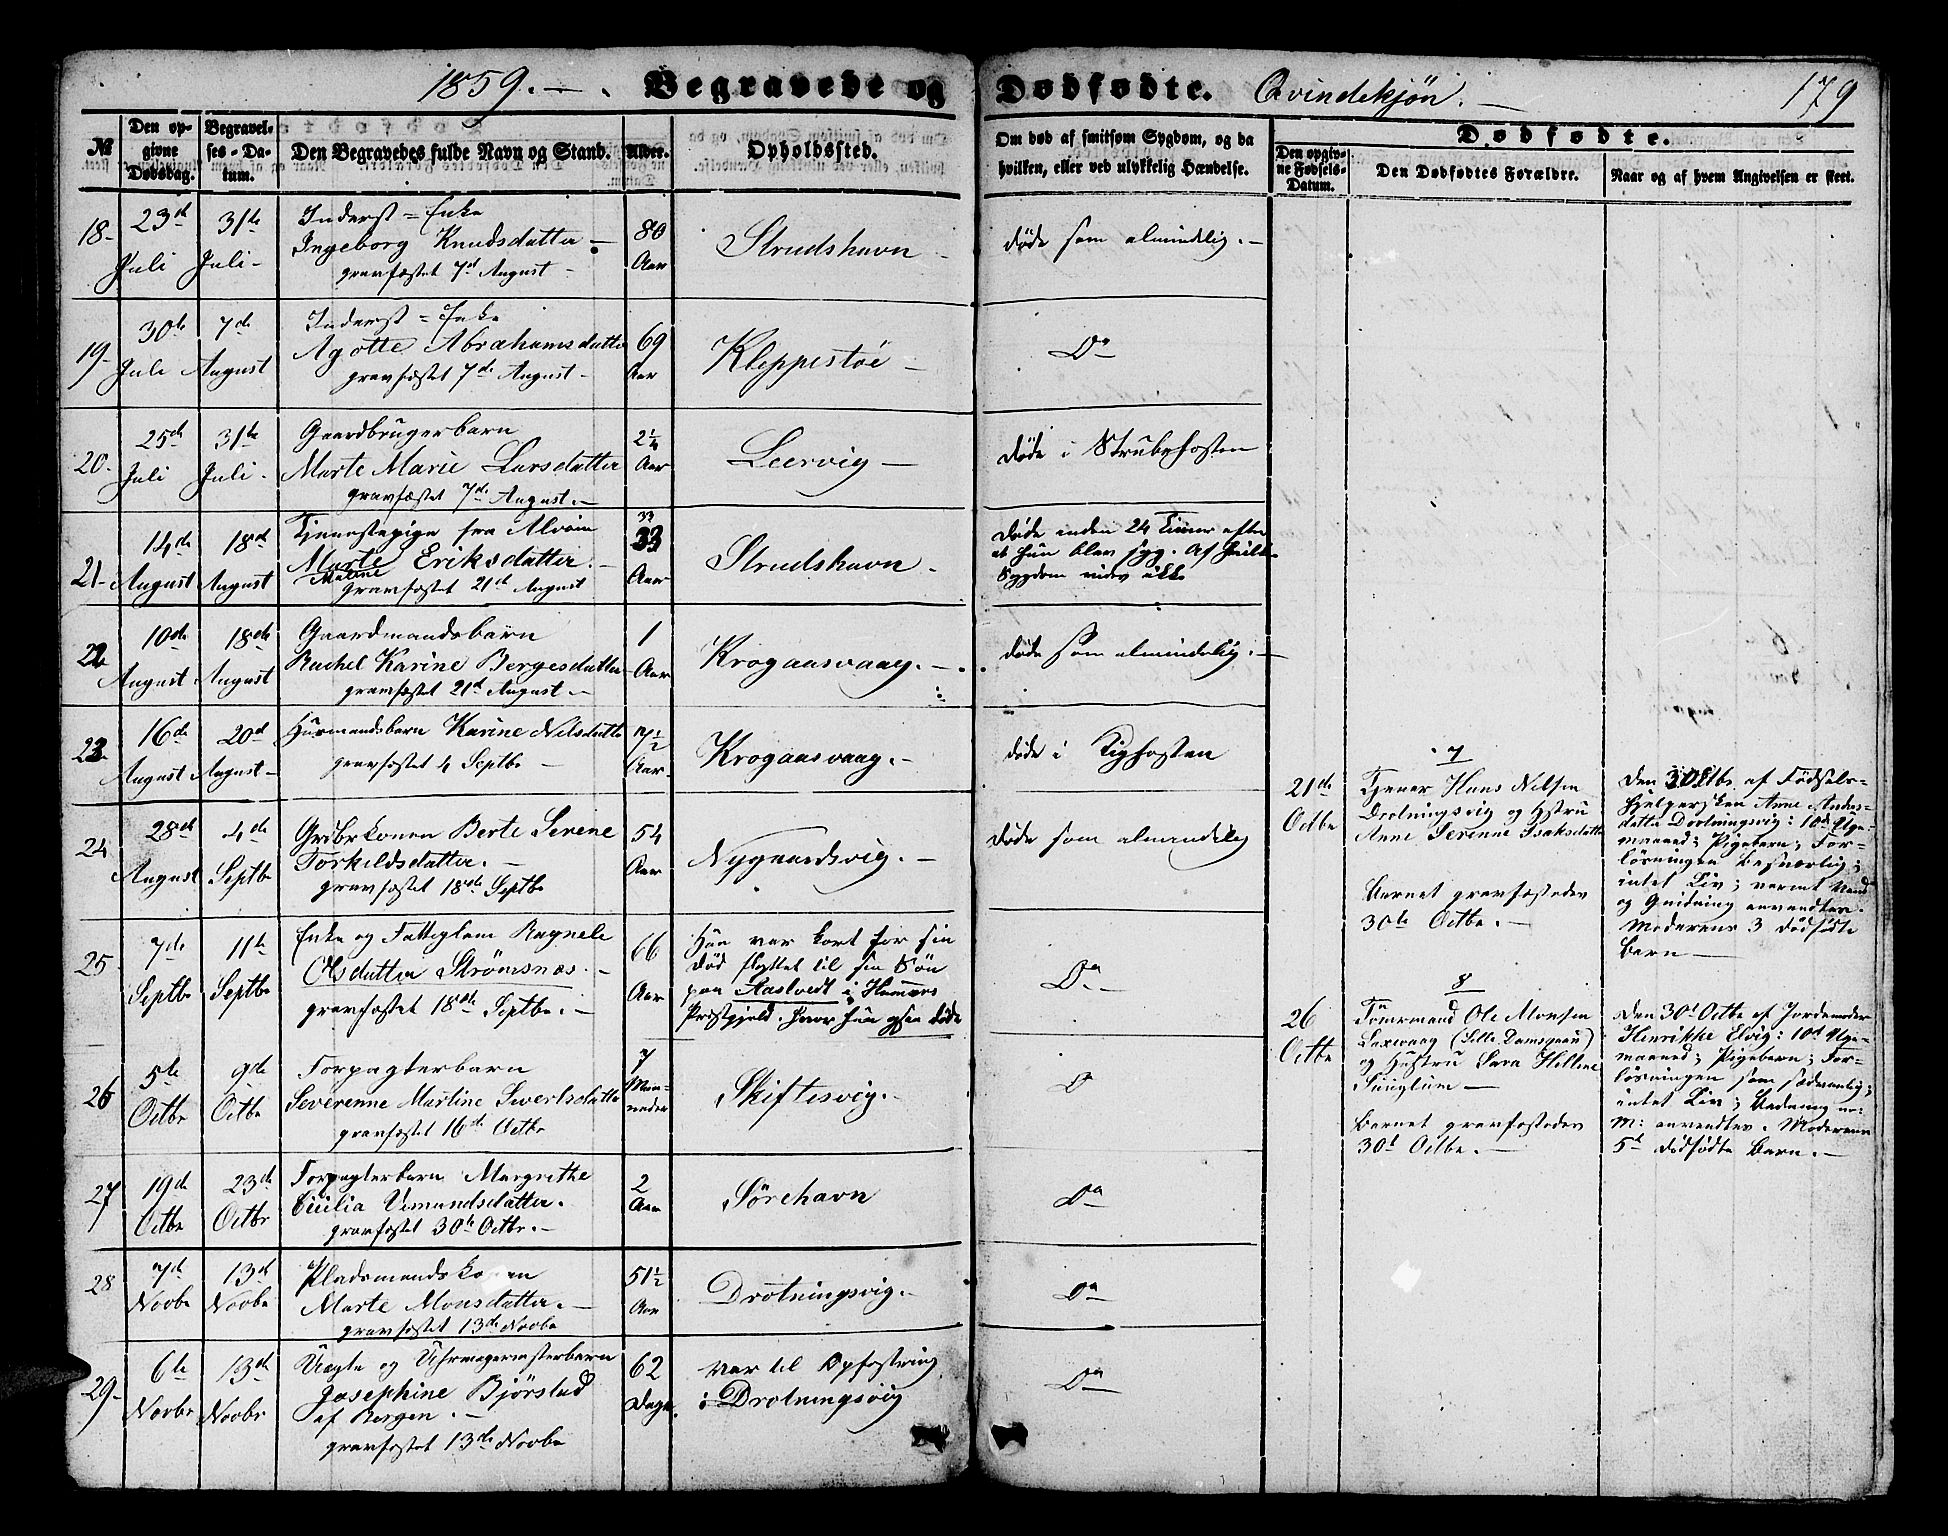 1859. — . Begravede og Dødfødte. Qvindekjøn. — 179
№
Den opgivne Dødsdag.
Begravelses-Datum.
Den Begravedes fulde Navn og Stand.
Alder.
Opholdssted.
Om død af smitsom Sygdom, og da
hvilken, eller ved ulykkelig Hændelse.
Dødfødte.
Den opgivne Fødsels-Datum.
Den Dødfødtes Forældre.
Naar og af hvem Angivelsen er skeet.
18- 23d Juli 31te Juli -
Inderst = Enke
Ingeborg Knudsdatter -
gravfæstet 7d August -
80 Aar
Strudshavn -
døde som almindelig. -
19- 30te Juli 7de August
Inderst = Enke
Agotte Abrahamsdatter
gravfæstet 7de August -
69 Aar
Kleppestøe -
Do
20- 25de Juli 31te Juli -
Gaardbrugerbarn
Marte Marie Larsdatter
gravfæstet 7de August. -
2¼ Aar
Leervig -
døde i Strubehosten
21- 14de August 18de August
Tjenestepige fra Alvøin
Marte Eriksdatter. -
Malene
gravfæstet 21d August
33
33 Aar
Strudshavn -
døde inden 24 Timer efter
at hun blev syg. Af hvilken
Sygdom vides ikke
22 10de August 18de August
Gaardmandsbarn
Rachel Karine Bergesdatter
gravfæstet 21d August -
1 Aar
Krogaasvaag. -
døde som almindelig. -
23 16de August 20d August -
Huusmandsbarn Karine Nilsdatter
gravfæstet 4 Septbr -
7½ Aar -
Krogaasvaag. -
døde i Kighosten
24 28de August 4de Septbr
Berte Serene
Torkildsdatter. -
gravfæstet 18de Septbr
54 Aar
Nygaardsvig. -
døde som almindelig
25 7de Septbr 11te Septbr
Enke og Fattiglem Ragnele
Olsdatter Strømsnæs. -
gravfæstet 18de Septbr. -
66 Aar
Hun var kort før sin
Død flyttet til sin Søn
paa Aastvedt i Hammers
Præstgjeld, hvor hun ogsaa døde
Do -
26 5te Octbr 9de Octbr
Forpagterbarn
Severenne Martine Sivertsdatter
gravfæstet 16de Octbr
7 Maaneder
Skiftesvig. -
D
27 19de Octbr 23de Octbr
Forpagterbarn Margrethe
Cicilia Vemundsdatter.
gravfæstet 30te Octbr. -
2 Aar
Sørehavn
Do
28 7de Novbr 13de Novbr
Pladsmandskonen
Marte Monsdatter. -
gravfæstet 13de Novbr
51½ Aar
Drotningsvig. -
Do
29- 6te Novbr 13de Novbr
Uægte og Uhrmagermesterbarn
Josephine Bjørstad
af Bergen. -
gravfæstet 13de Novbr
62 Dage.
var til Opfostring
i Drotningsvig
Do
7
21de Octbr
Tjener Hans Nilsen
Drotningsvig og Hstru
Anne Serenne Isaksdatter
Barnet gravfæstedes
30te Octbr. -
Den 30 Octbr. af Fødsels-
hjelpersken Anne Anders-
datter Drotningsvig: 10de Uge-
maaned; Pigebarn; For-
løsningen besværlig;
intet Liv; varmt Vand
og Gnidning anvendtes.
Moderens 3 dødfødte
Barn -
8
26 Octbr
Tømrmand Ole Monsen
Laxevaag (Lille Damsgaard)
og Hustru Sara Helline
Barnet gravfæstedes
30t Octbr. -
Den 30t Octbr af Jordemoder
Henrikke Elvig: 10d Uge-
maaned; Pigebarn; For-
løsningen som sædvanlig;
intet Liv;
M: anvendtes. Moderens
5te dødfødte Barn. -